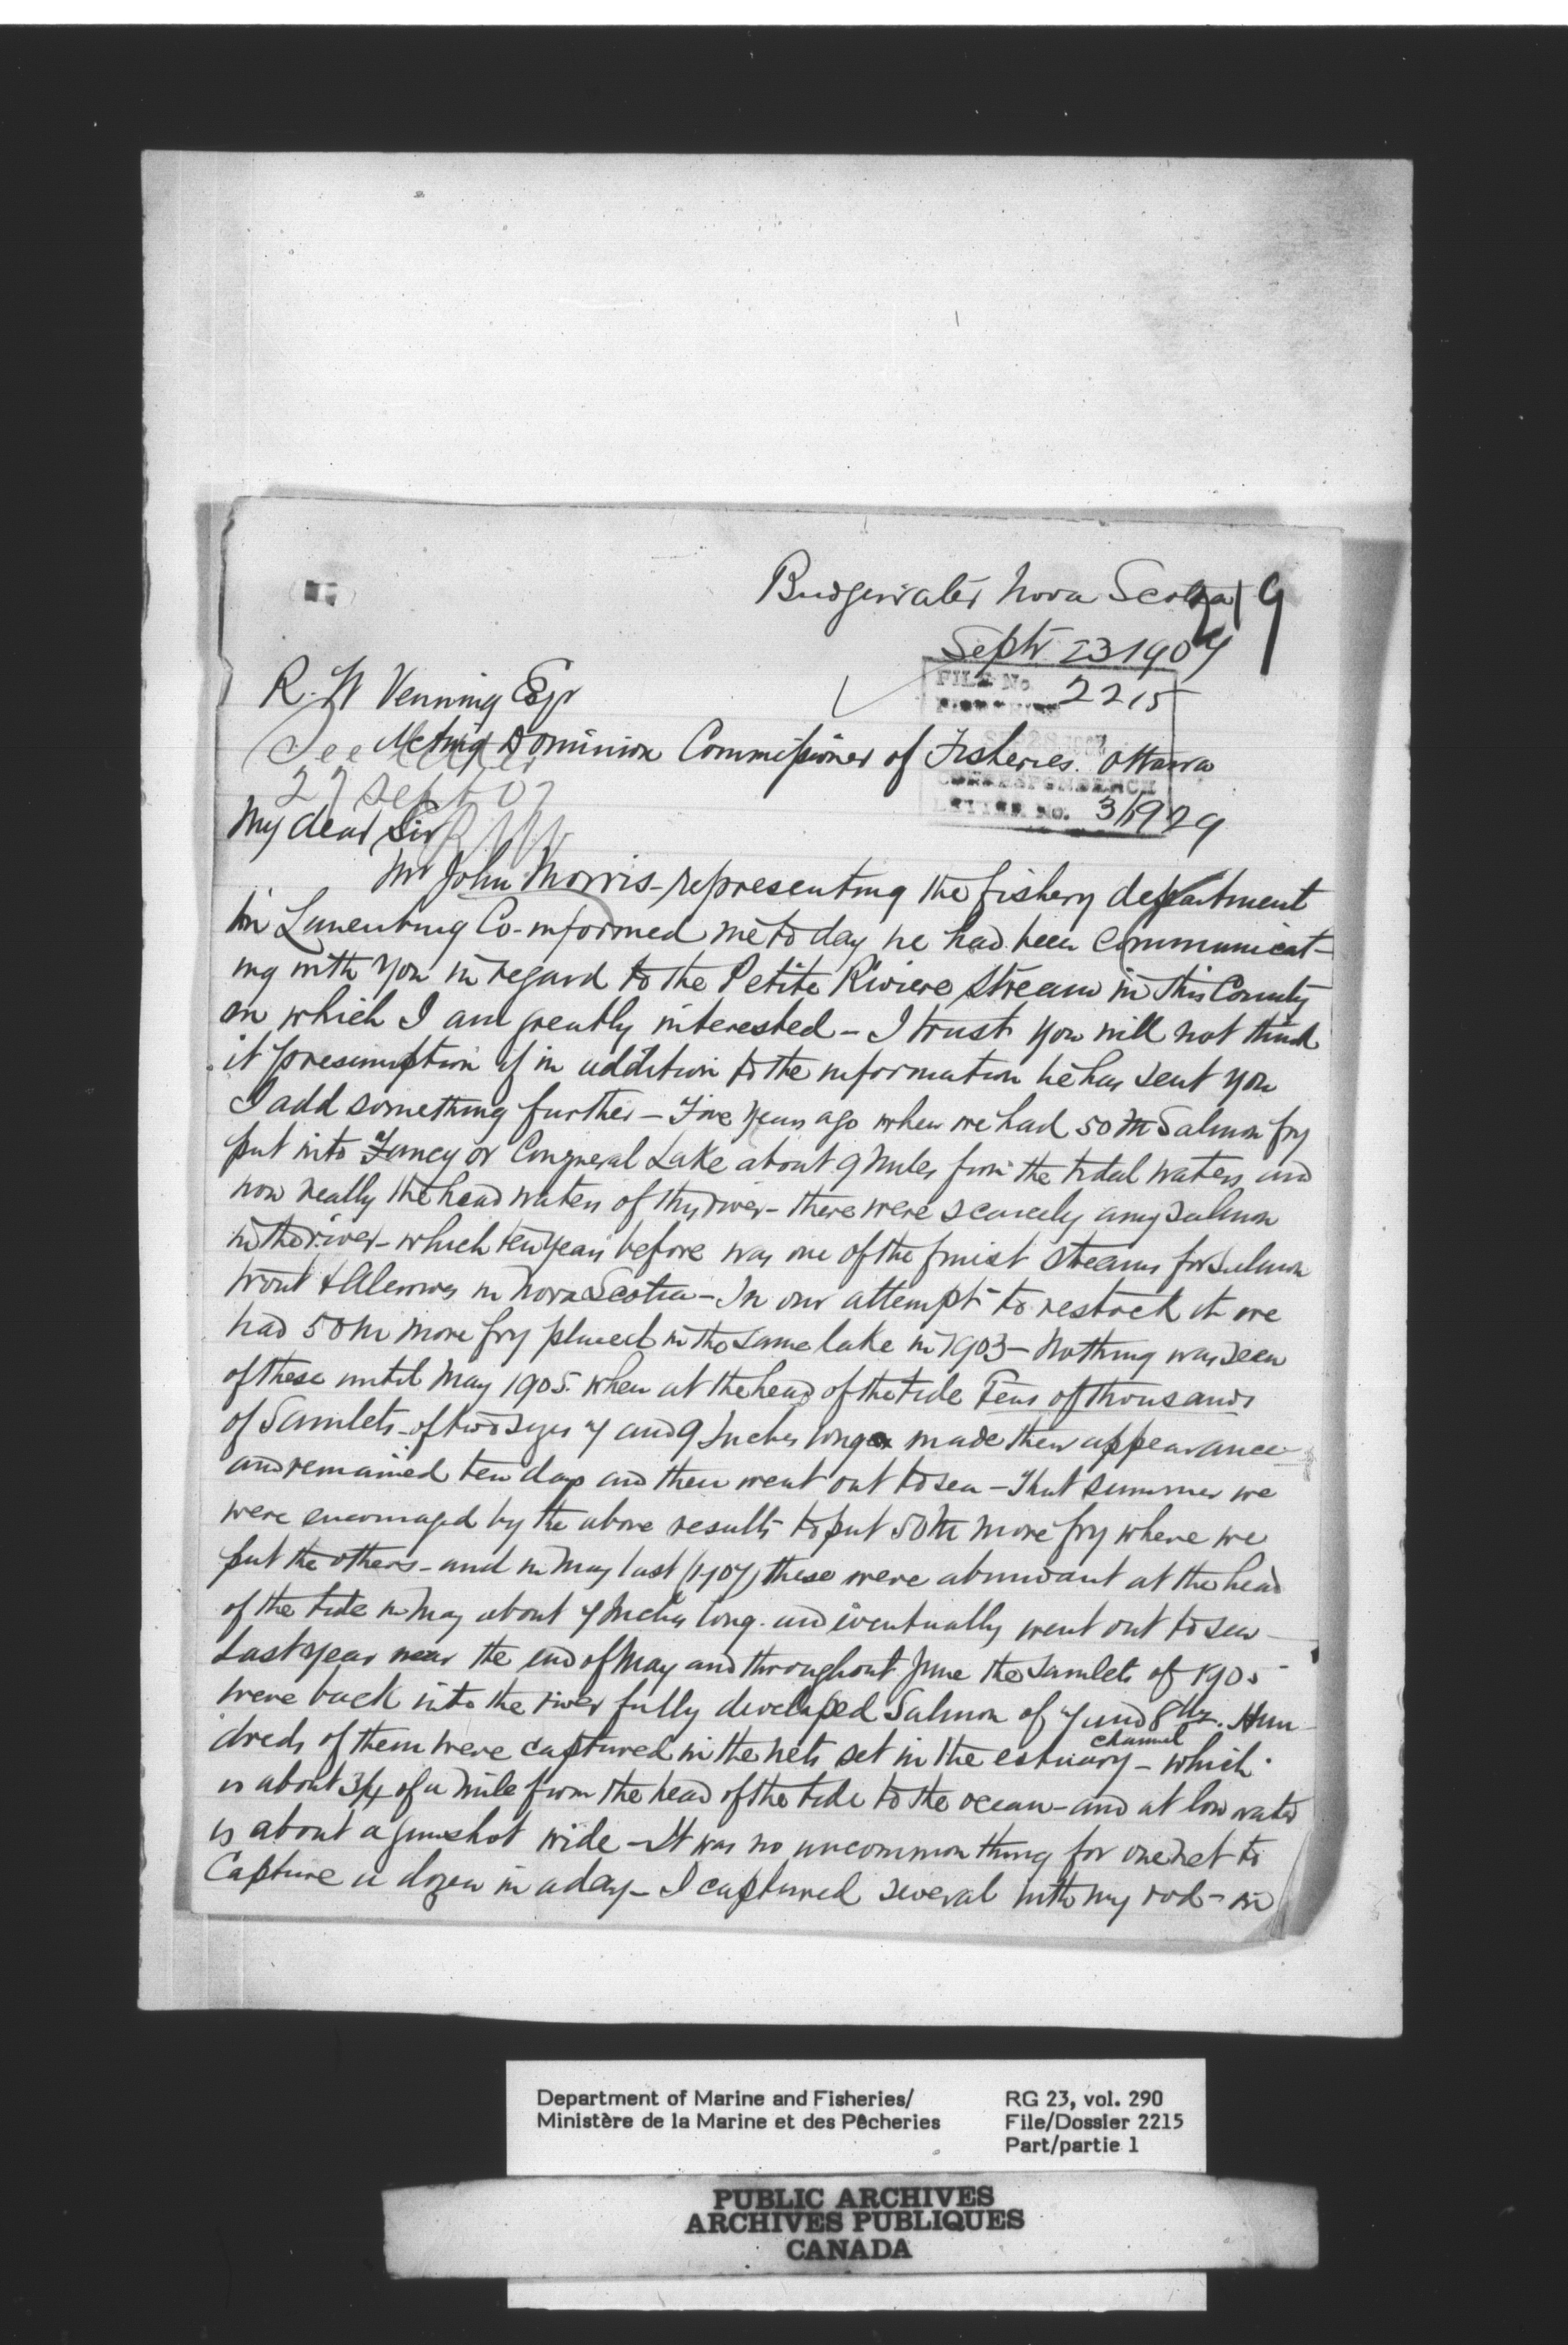 Bridgewater Nova Scotia
19
Septr 23 1907
R. W Venning Esqr
FILE No. 2215
FISHERIES
SEP 28 1907
See
Acting Dominion Commissioner of Fisheries. Ottawa
27 Sept 07
CORRESPONDENCE
LETTER No. 31929
My dear Sir
Mr John Morris - representing the fishery department
in Lunenburg Co - informed me to day he had been communicat-
ing with you in regard to the Petite Riviere stream in this County
in which I am greatly interested - I trust you will not think
it presumption if in addition to the information he has sent you
I add something further - Five years ago when we had 50 M Salmon fry
put into Fancy or Congneral Lake about 9 miles from the tidal waters and
now really the head waters of this river - there were scarcely any salmon
in the river - which ten years before was one of the finest streams for salmon
trout & Alewives in Nova Scotia - In our attempt to restock it we
had 50 M more fry placed in the same lake in 1903 - Nothing was seen
of these until May 1905. when at the head of the tide Tens of thousands
of Samlets - of two sizes 7 and 9 Inches long made their appearance
and remained ten days and then went out to sea - That summer we
were encouraged by the above results to put 50 M more fry where we
put the others - and in May last (1907) these were abundant at the head
of the tide in May about 7 Inches long. and eventually went out to sea -
Last year near the end of May and throughout June the samlets of 1905
were back into the river fully developed Salmon of 7 and 8 lbs. Hun-
dreds of them were captured in the nets set in the estuary channel - which
is about 3/4 of a mile from the head of the tide to the ocean - and at low water
is about a gunshot wide - It was no uncommon thing for one net to
Capture a dozen in a day - I captured several with my rod - in
Department of Marine and Fisheries/
Ministère de la Marine et des Pêcheries
RG 23, vol. 290
File/Dossier 2215
Part/partie 1
PUBLIC ARCHIVES
ARCHIVES PUBLIQUES
CANADA